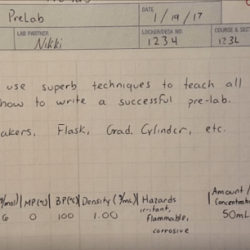 Prelab
DATE
1/19/17
LAB PARTNER
Nikki
LOCKER/DESK NO.
1234
COURSE & SECT
123L
use superb techniques to teach all
how to write a successful pre-lab.
akers, Flask, Grad. Cylinder, etc.
g/mol) MP(°C) BP(°C) Density (g/mL) Hazards Amount/
irritant, concentratio
0 100 1.00 flammable, 50mL
corrosive